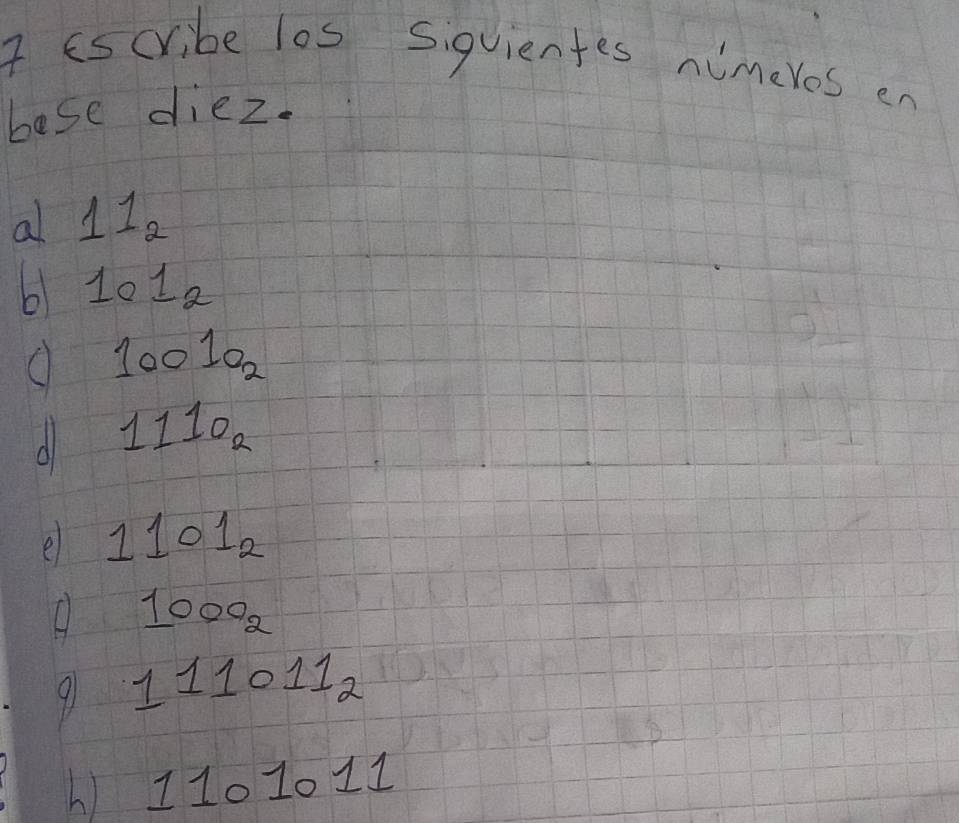 7 Escribe los siguientes números en
base diez.
a) 11₂
b) 101₂
c) 10010₂
d) 1110₂
e) 1101₂
f) 1000₂
g) 111011₂
h) 1101011